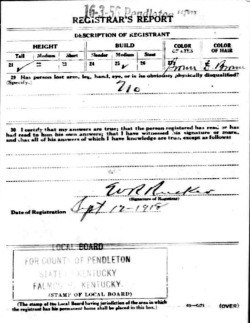 16-3-5 Pendleton
REGISTRAR'S REPORT
DESCRIPTION OF REGISTRANT
HEIGHT BUILD COLOR OF EYES COLOR OF HAIR
Tall Medium Short Slender Medium Stout
21 22 23 24 25 26 27 Brown 28 Brown
29 Has person lost arm, leg, hand, eye, or is he obviously physically disqualified?
(Specify.)
No
30 I certify that my answers are true; that the person registered has read or has
had read to him his own answers; that I have witnessed his signature or mark,
and that all of his answers of which I have knowledge are true, except as follows:
(Signature of Registrar)
Date of Registration Sept 12-1918
LOCAL BOARD
FOR COUNTY OF PENDLETON
STATE KENTUCKY
KENTUCKY
(STAMP OF LOCAL BOARD)
(The stamp of the Local Board having jurisdiction of the area in which
the registrant has his permanent home shall be placed in this box.)
(OVER)